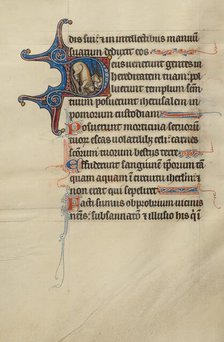 dis suis: & in intellectibus manuū
suarum deduxit eos
Deus venerunt gentes in
hereditatem tuam: pol
luerunt templum sanc
tuum posuerunt iherusalem in
pomorum custodiam
Posuerunt morticina seruorū
tuorum escas volatilib; celi: carnes
sanctorum tuorum bestiis terre
Effuderunt sanguinē ipsorum tā
quam aquam ī circuitu iherl̄m: &
non erat qui sepeliret
Facti sumus obprobrium vicinis
nr̄is: subsannatō & illusio his q̄ i